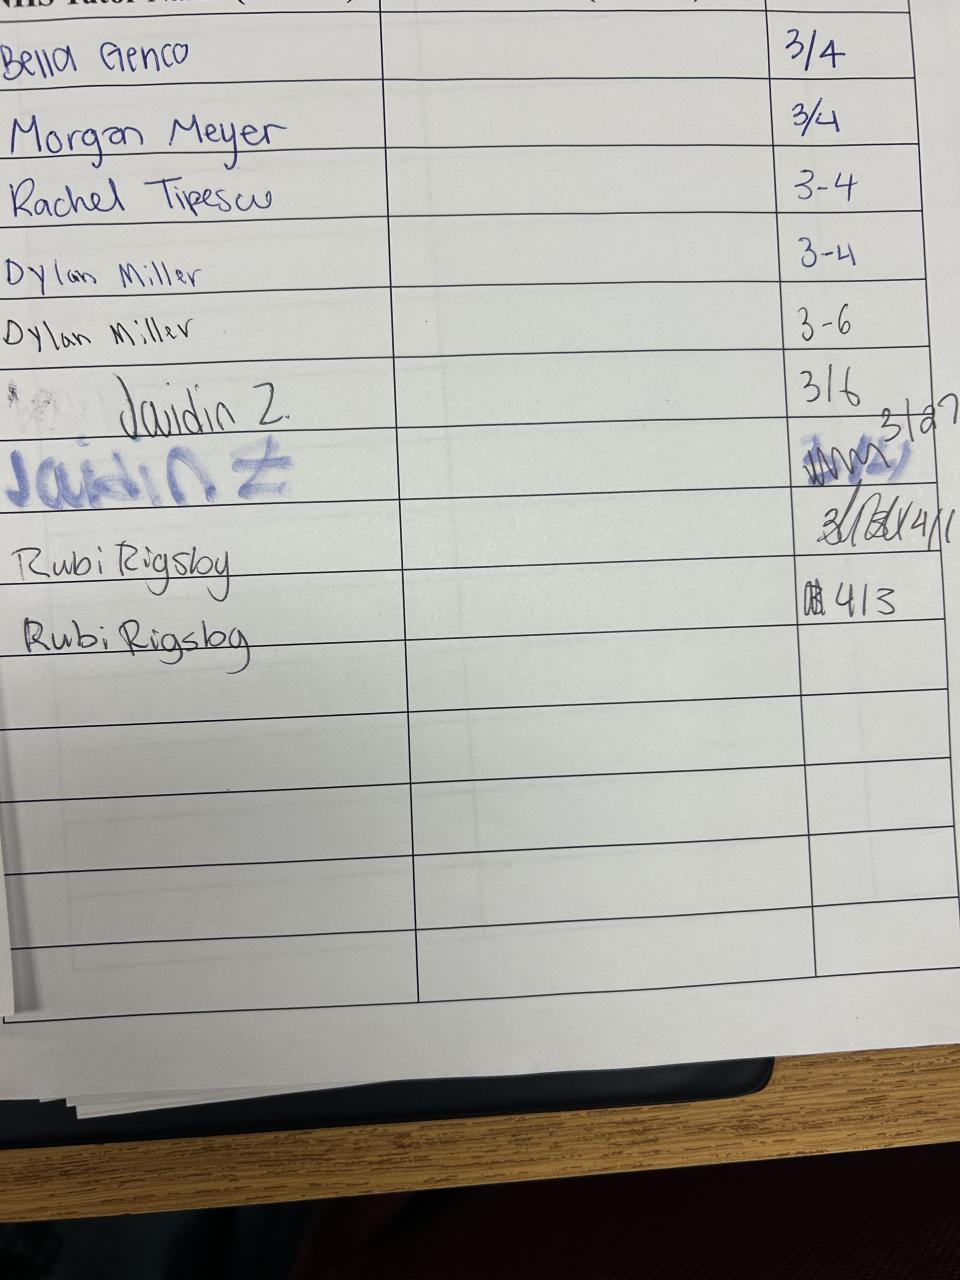 Bella Genco 3/4
Morgan Meyer 3/4
Rachel Tipescu 3-4
Dylan Miller 3-4
Dylan Miller 3-6
Jaidin Z. 3/6
Jaidin Z 3/27
Rubi Rigsby 4/1
Rubi Rigsby 4/3